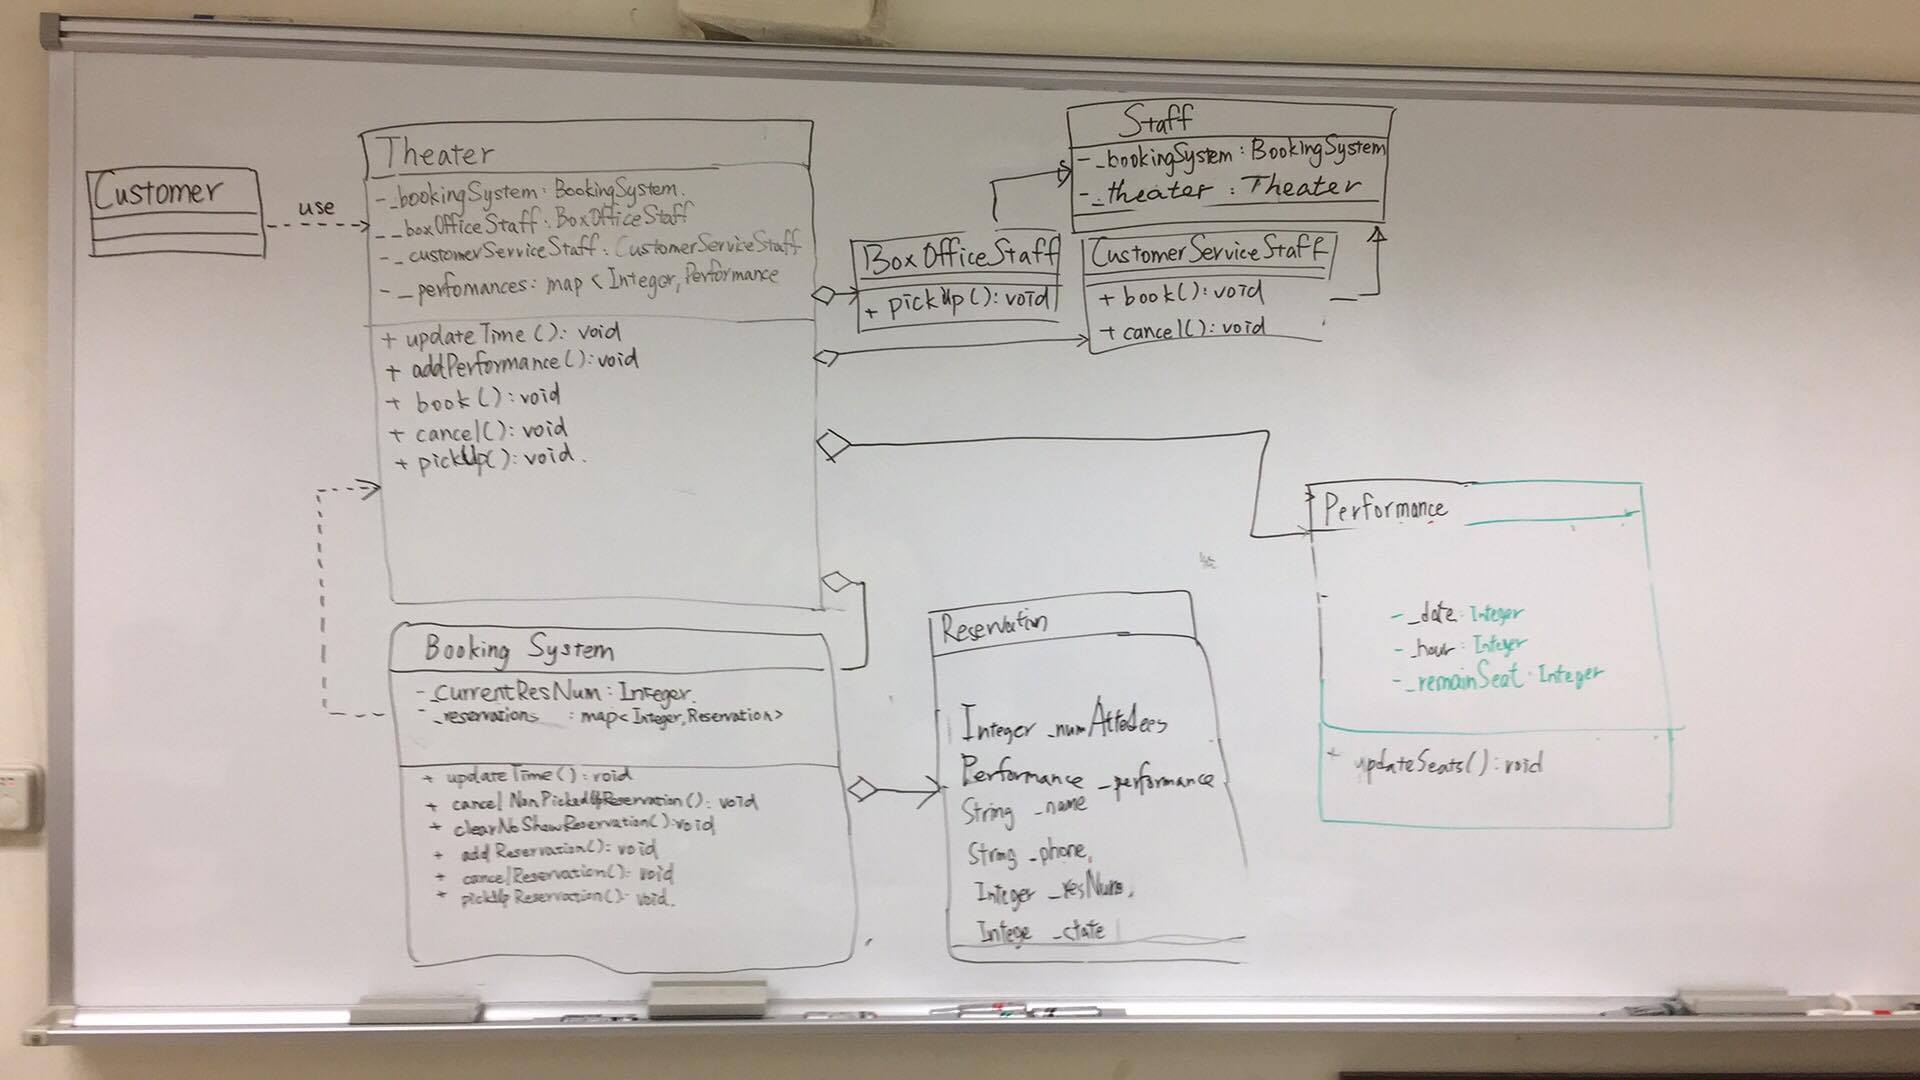 Customer
use
Theater
- _bookingSystem : BookingSystem.
- _boxOfficeStaff : BoxOfficeStaff
- _customerServiceStaff : CustomerServiceStaff
- _perfomances : map < Integer, Performance
+ updateTime () : void
+ addPerformance () : void
+ book () : void
+ cancel () : void
+ pickUp() : void.
Staff
- _bookingSystem : BookingSystem
- _theater : Theater
BoxOfficeStaff
+ pickUp () : void
CustomerServiceStaff
+ book () : void
+ cancel () : void
Performance
- _date : Integer
- _hour : Integer
- _remainSeat : Integer
+ updateSeats() : void
Booking System
- _currentResNum : Integer.
- _reservations : map<Integer, Reservation>
+ updateTime () : void
+ cancelNonPickedUpReservation () : void
+ clearNoShowReservation () : void
+ addReservation() : void
+ cancelReservation() : void
+ pickUpReservation() : void.
Reservation
Integer _numAttedees
Performance _performance
String _name
String _phone,
Integer _resNum,
Intege _state